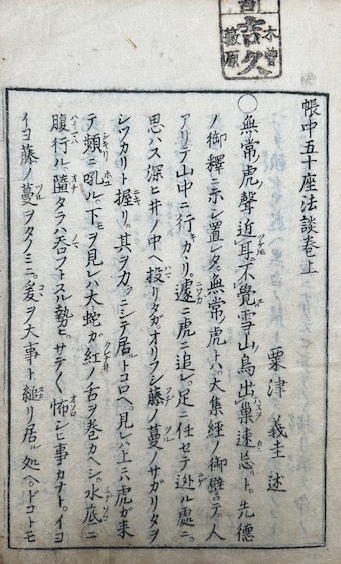 木曽
吉久
藪原
帳中五十座法談巻上
粟津義圭述
○無常虎聲近耳不覺雪山鳥出巣速忘ト。先德
ノ御釋ニ示シ置レタ。無常ノ虎トハ大集經ノ御譬デ。人
アリテ山中ニ行キカヽリ。遽ニ虎ニ追レ。足ニ任セテ迯ル處ニ。
思ハス深ヒ井ノ中ヘ投リタガオリフシ藤ノ蔓ノサガリタヲ
シツカリト握リ。其ヲ力ニシテ居ルトコロヘ。見レハ上ニハ虎ガ来
テ頻ニ吼ル。下モヲ見レハ大蛇ガ紅ノ舌ヲ巻カヘシ。水底ニ
腹行ル墮タラハ呑フトスル勢ヒ。サテ〳〵怖シヒ事カナト。イヨ
イヨ藤ノ蔓ヲタノミニ。爰ヲ大事ト縋リ居ル処ヘ。ドコトモ